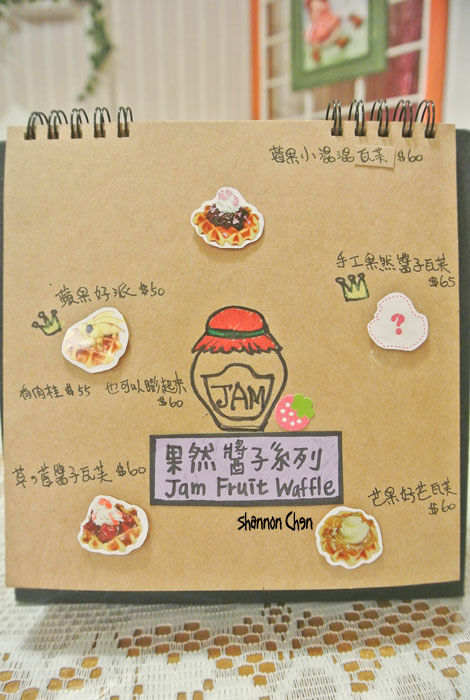 莓果小混混瓦芙 $60
手工果然醬子瓦芙
$65
?
蘋果好派 $50
有肉桂 $55 也可以膨起來
$60
JAM
果然醬子系列
Jam Fruit Waffle
草ㄉ莓醬子瓦芙 $60
芒果好芒瓦芙
$60
Shannon Chen